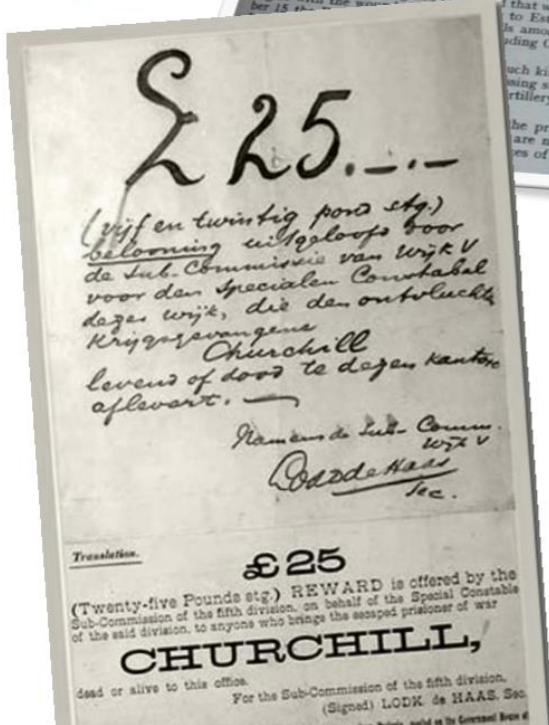 £ 25.-.-
(vijf en twintig pond stg.)
belooning uitgeloofd door
de Sub-Commissie van Wijk V
voor den specialen Constabel
dezer wijk, die den ontvluchte
Krijgsgevangene
Churchill
levend of dood te dezen kantore
aflevert.
Namens de Sub-Comm.
Wijk V
de Haas
Sec.
Translation.
£25
(Twenty-five Pounds stg.) REWARD is offered by the
Sub-Commission of the fifth division, on behalf of the Special Constable
of the said division, to anyone who brings the escaped prisoner of war
CHURCHILL,
dead or alive to this office.
For the Sub-Commission of the fifth division,
(Signed) LODK. de HAAS, Sec.